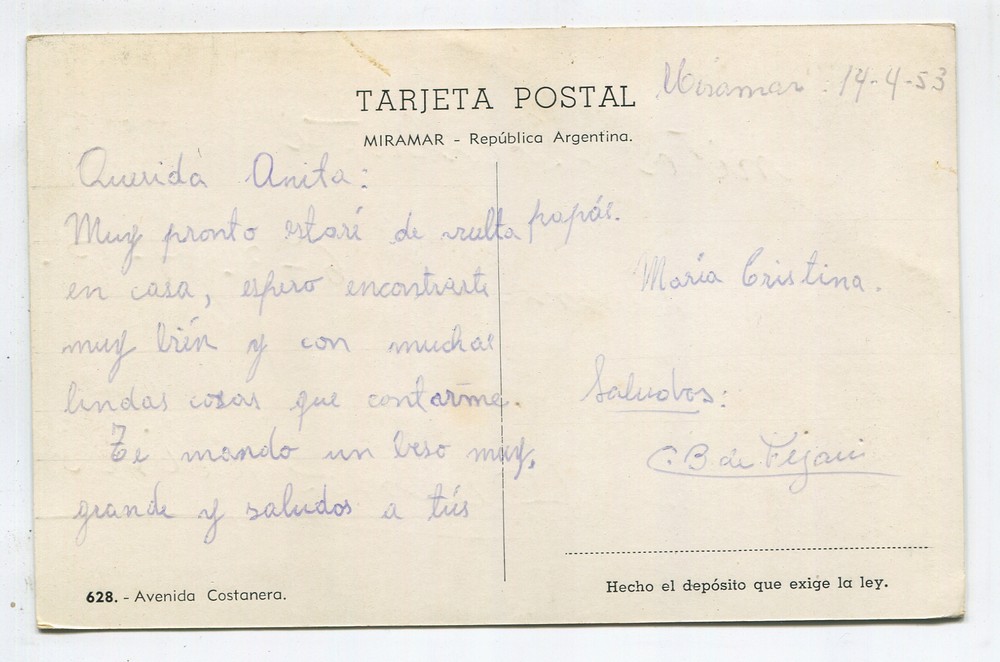 Miramar. 14-4-53
TARJETA POSTAL
MIRAMAR - República Argentina.
Querida Anita:
Muy pronto estaré de vuelta
en casa, espero encontrarte
muy bién y con muchas
lindas cosas que contarme.
Te mando un beso muy,
grande y saludos a tús
papás.
María Cristina.
Saludos:
C.B de
628. - Avenida Costanera.
Hecho el depósito que exige la ley.